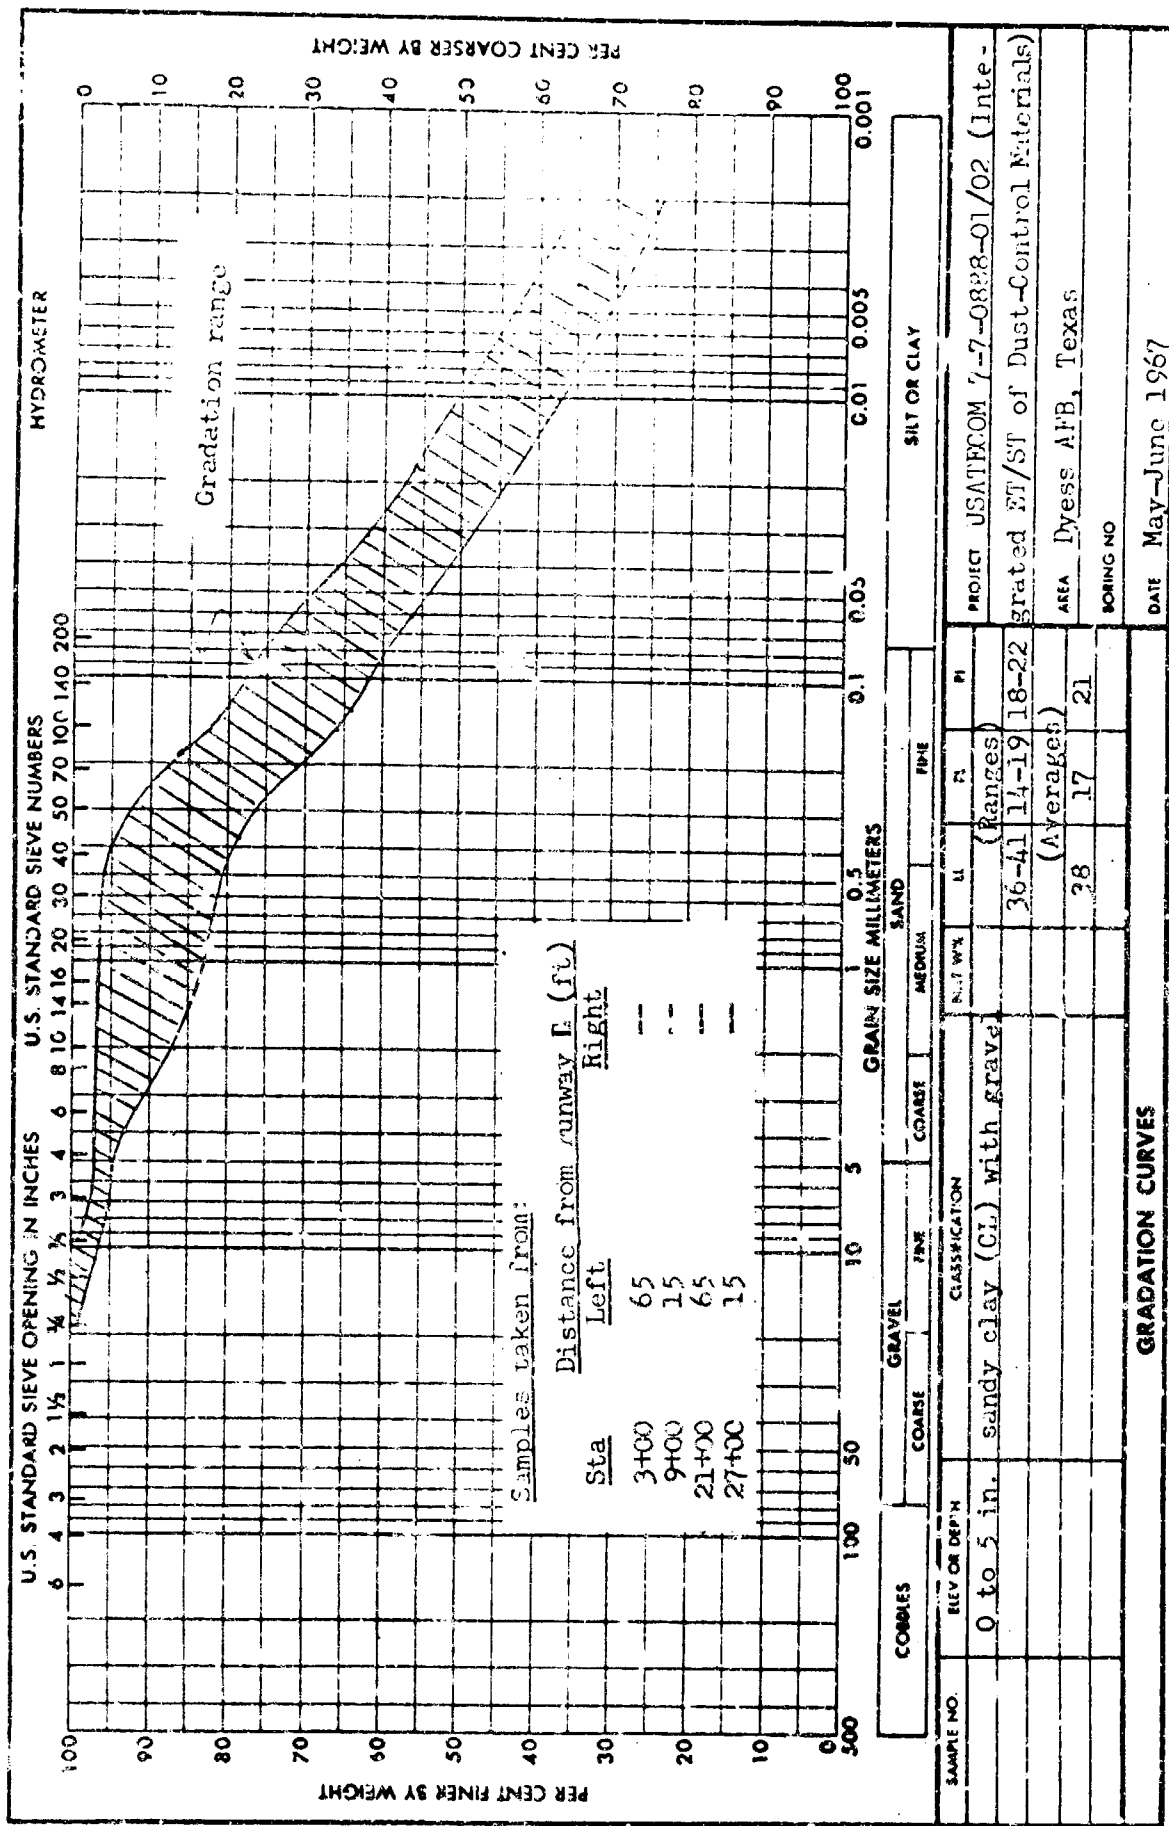 U.S. STANDARD SIEVE OPENING IN INCHES U.S. STANDARD SIEVE NUMBERS HYDROMETER
6 4 3 2 1½ 1 ¾ ½ ⅜ 3 4 6 8 10 14 16 20 30 40 50 70 100 140 200
PER CENT FINER BY WEIGHT
100
90
80
70
60
50
40
30
20
10
0
PER CENT COARSER BY WEIGHT
0
10
20
30
40
50
60
70
80
90
100
Gradation range
Samples taken from:
Distance from runway (ft)
Sta Left Right
3+00 65 --
9+00 15 --
21+00 65 --
27+00 15 --
500 100 50 10 5 1 0.5 0.1 0.05 0.01 0.005 0.001
GRAIN SIZE MILLIMETERS
COBBLES GRAVEL SAND SILT OR CLAY
COARSE FINE COARSE MEDIUM FINE
SAMPLE NO. ELEV OR DEPTH CLASSIFICATION NAT W% LL PL PI
0 to 5 in. sandy clay (CL) with gravel
(Ranges)
36-41 14-19 18-22
(Averages)
38 17 21
PROJECT USATECOM 7-7-0888-01/02 (Inte-
grated ET/ST of Dust-Control Materials)
AREA Dyess AFB, Texas
BORING NO
DATE May-June 1967
GRADATION CURVES